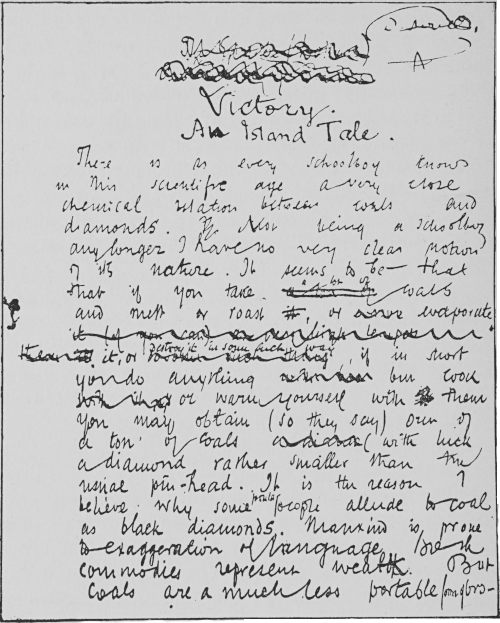 Victory.
An Island Tale.
There is as every schoolboy knows
in this scientific age a very close
chemical relation between coals and
diamonds. Not being a schoolboy
any longer I have no very clear notion
of its nature. It seems to be that
that if you take a bit of coals
and melt or roast it, or evaporate
it, or destroy it in some such way if in short
you do anything but cook
or warm yourself with them
you may obtain (so they say) out of
a ton of coals (with luck
a diamond rather smaller than the
usual pin-head. It is the reason I
believe why some people allude to coal
as black diamonds. Mankind is prone
to exaggeration of language. Both
commodies represent wealth. But
coals are a much less portable form of pros-